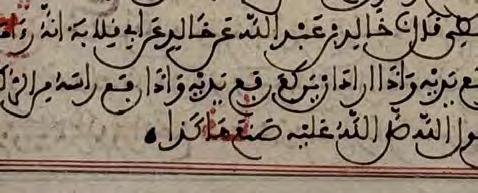 قال خالد بن عبد الله عن خالد عن ابي قلابة انه را
يديه واذا اراد ان يركع رفع يديه واذا رفع راسه من الرك
ول الله صلى الله عليه صنع هاكذا